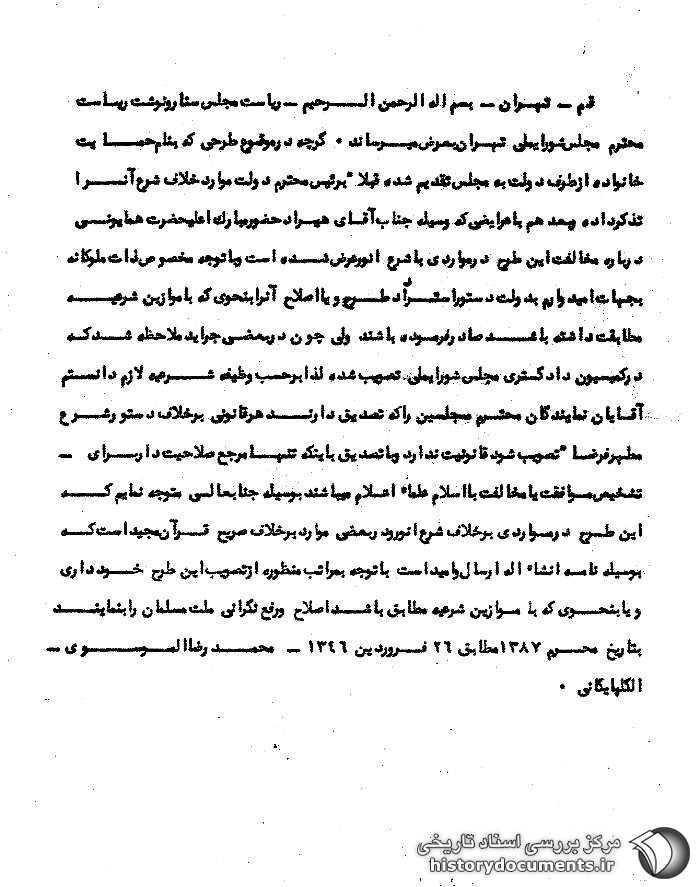 قم ــ تهران ــ بسم اله الرحمن الرحیم ــ ریاست مجلس سنا رونوشت ریاست
محترم مجلس شورایملی تهران بعرض میرساند ۰ گرچه در موضوع طرحی که بنام حمایت
خانواده از طرف دولت به مجلس تقدیم شده قبلا" برئیس محترم دولت موارد خلاف شرع آنرا
تذکر داده وبعد هم با عرایضی که وسیله جناب آقای هیراد حضور مبارك اعلیحضرت همایونی
درباره مخالفت این طرح در مواردی با شرع انور عرض شده است وبا توجه مخصوص ذات ملوکانه
بجهات امیدوارم بدولت دستور استرداد طرح و یا اصلاح آنرا بنحوی که با موازین شرعیه
مطابقت داشته باشد صادر فرموده باشند ولی چون در بعضی جراید ملاحظه شد که
در کمیسیون دادگستری مجلس شورایملی تصویب شده لذا بر حسب وظیفه شرعیه لازم دانستم
آقایان نمایندگان محترم مجلسین را که تصدیق دارند هر قانونی بر خلاف دستور شرع
مطهر فرضا" تصویب شود قانونیت ندارد وبا تصدیق باینکه تنها مرجع صلاحیت دار برای ــ
تشخیص موافقت یا مخالفت با اسلام علماء اعلام میباشند بوسیله جنابعالی متوجه نمایم که
این طرح در مواردی بر خلاف شرع انور ود بعضی موارد بر خلاف صریح قرآن مجید است که
بوسیله نامه انشاء اله ارسال و امید است با توجه بمراتب منظوره از تصویب این طرح خودداری
و یا بنحوی که با موازین شرعیه مطابق باشد اصلاح ورفع نگرانی ملت مسلمان را بنمایند
بتاریخ محرم ۱۳۸۷ مطابق ۲۶ فروردین ۱۳٤٦ ــ محمد رضا الموسوی ــ
الگلپایگانی ۰
مرکز بررسی اسناد تاریخی
historydocuments.ir